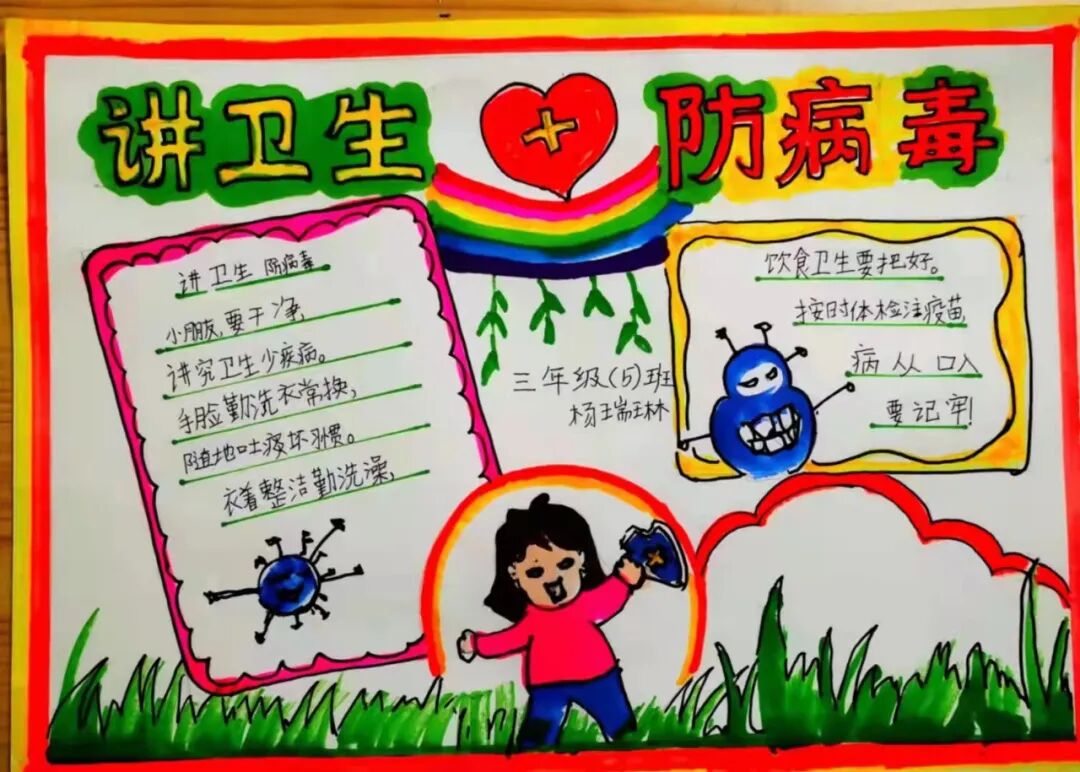 讲卫生 防病毒
讲卫生 防病毒
小朋友,要干净,
讲究卫生少疾病。
手脸勤洗衣常换,
随地吐痰坏习惯。
衣着整洁勤洗澡,
三年级(5)班
杨瑞琳
饮食卫生要把好。
按时体检注疫苗,
病从口入
要记牢!